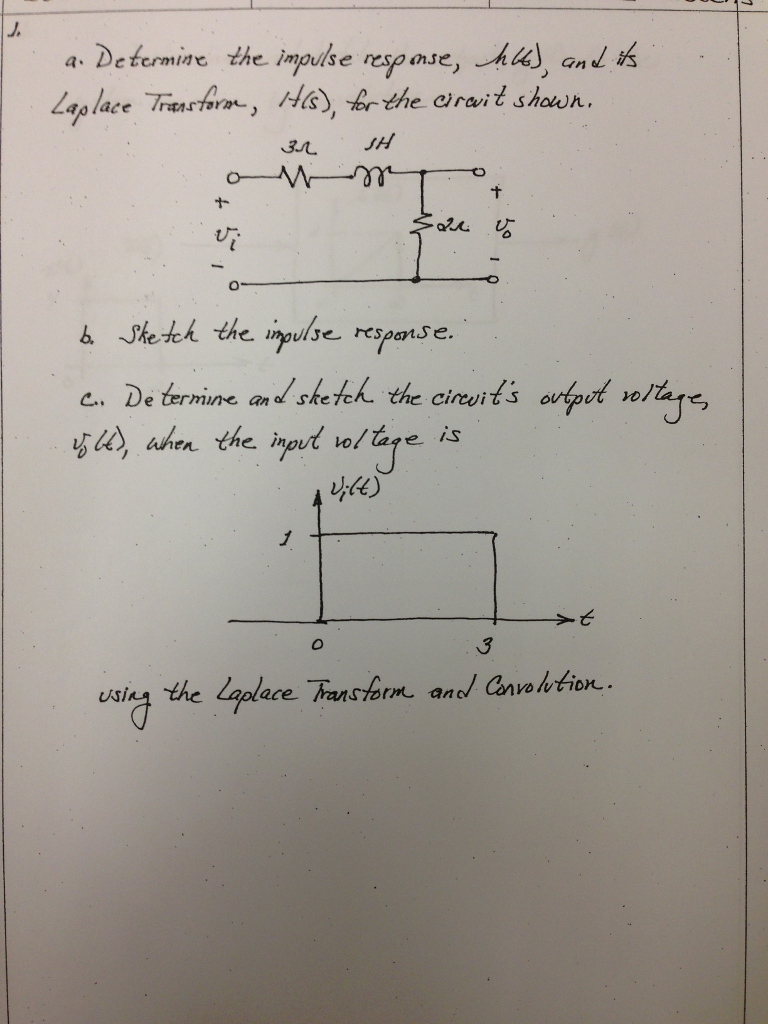 1.
a. Determine the impulse response, h(t), and its
Laplace Transform, H(s), for the circuit shown.
3Ω 1H
+ +
vi 2Ω vo
- -
b. Sketch the impulse response.
c.. Determine and sketch the circuit's output voltage,
vo(t), when the input voltage is
vi(t)
1
t
0 3
using the Laplace Transform and Convolution.